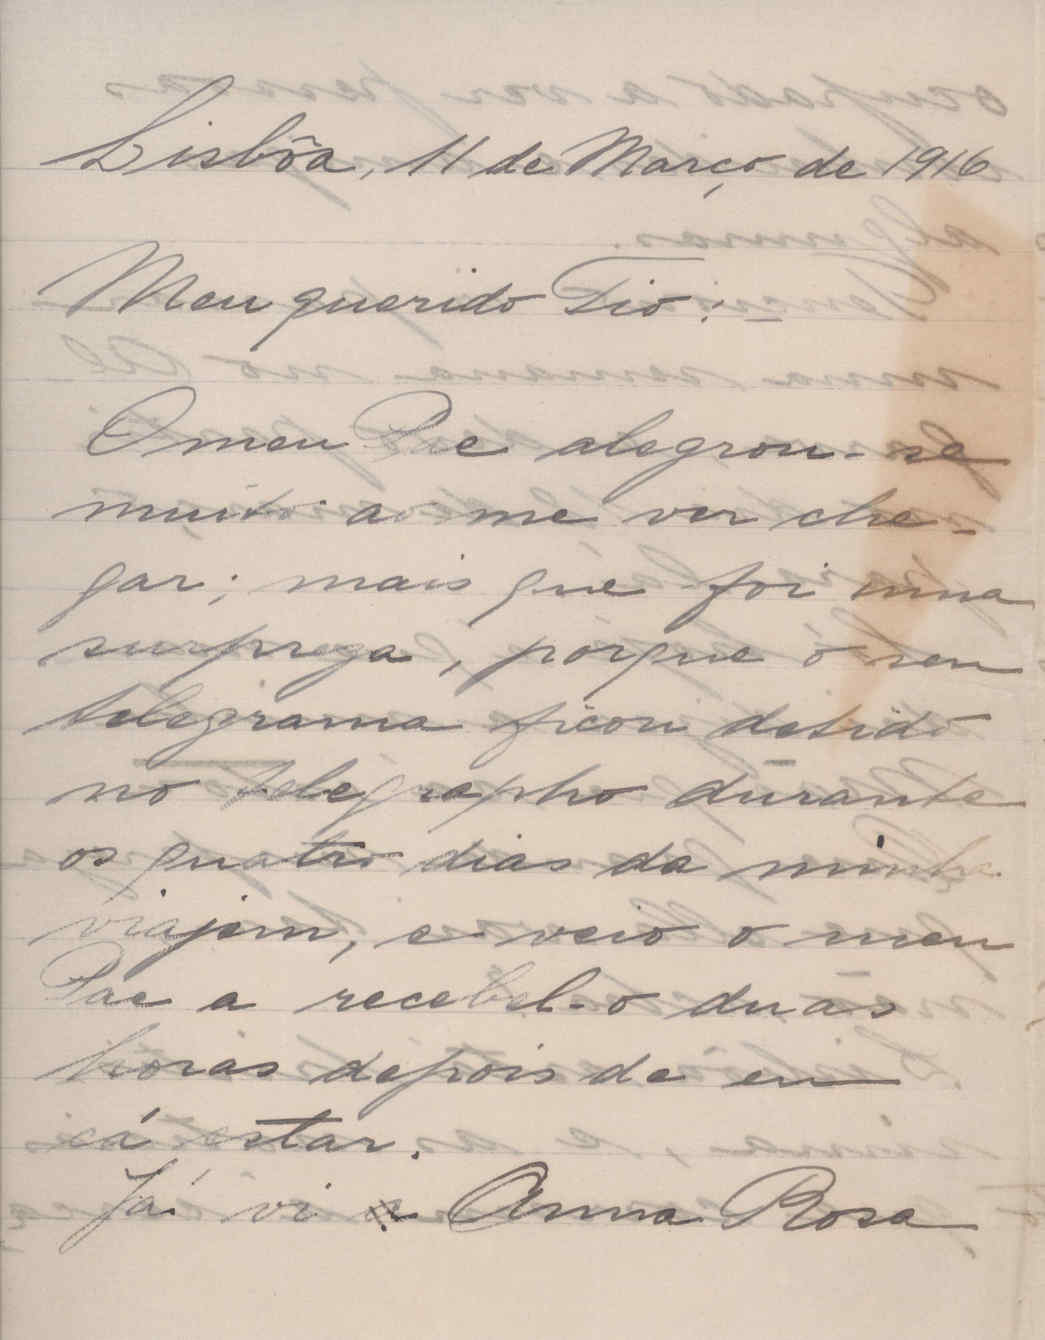 Lisbôa, 11 de Março de 1916
Meu querido Tio: —
O meu Pae alegrou-se
muito ao me ver che-
gar; mais que foi uma
surpreza, porque o seu
telegrama ficou detido
no telegrapho durante
os quatro dias da minha
viajem, e veio o meu
Pae a recebel-o duas
horas depois de eu
cá estar.
Já vi a Anna Rosa